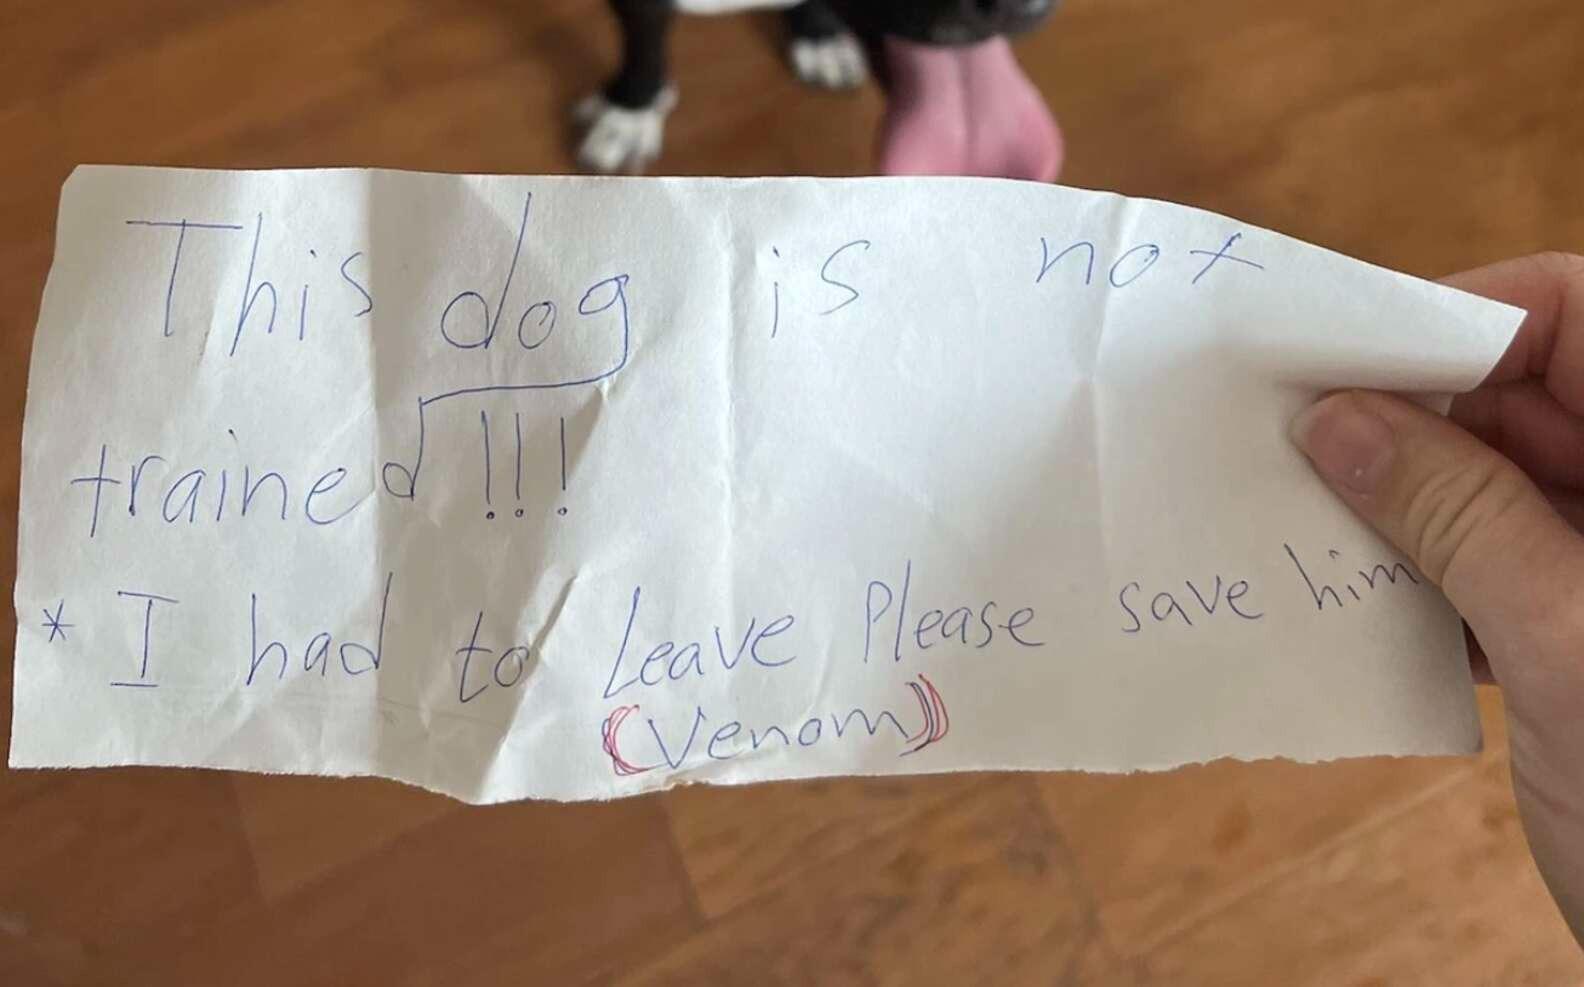 This dog is not
trained!!!
* I had to Leave Please save him
(Venom)